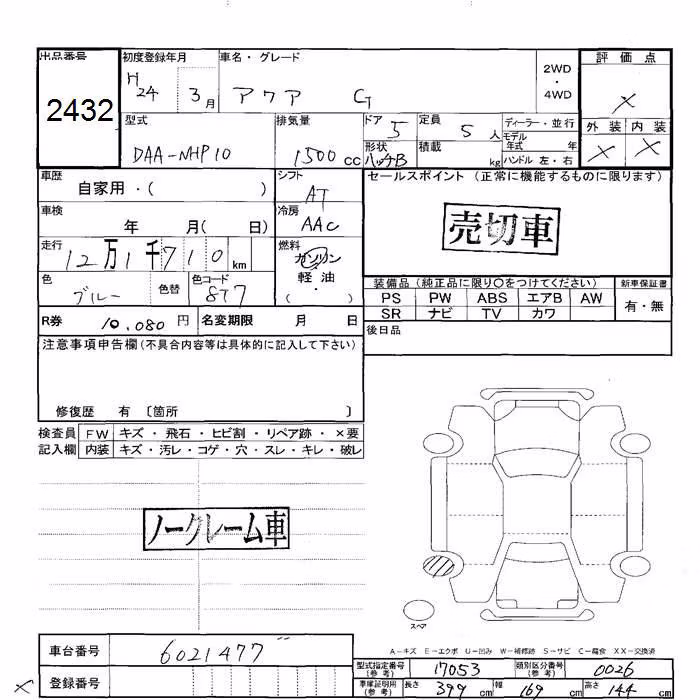 出品番号 初度登録年月 車名・グレード 2WD・4WD 評価点
2432 H24 3月 アクア G ×
型式 排気量 ドア 5 定員 5人 ディーラー・並行 外装 内装
DAA-NHP10 1500cc 形状 ハッチB 積載 kg モデル年式 年 × ×
ハンドル 左・右
車歴 自家用・( ) シフト AT セールスポイント (正常に機能するものに限ります)
車検 年 月( 日) 冷房 AAC
売切車
走行 12万1千710km 燃料 ガソリン
軽油
( )
色 ブルー 色替 色コード 8T7
装備品 (純正品に限り○をつけてください) 新車保証書
PS PW ABS エアB AW 有・無
SR ナビ TV カワ
R券 10,080円 名変期限 月 日
後日品
注意事項申告欄(不具合内容等は具体的に記入して下さい)
修復歴 有 〔箇所 〕
検査員 FW キズ・飛石・ヒビ割・リペア跡・×要
記入欄 内装 キズ・汚レ・コゲ・穴・スレ・キレ・破レ
ノークレーム車
スペア
A-キズ E-エクボ U-凹み W-補修跡 S-サビ C-腐食 XX-交換済
車台番号 6021477
型式指定番号(参考) 17053 類別区分番号(参考) 0026
× 登録番号
車庫証明用(参考) 長さ 399cm 幅 169cm 高さ 144cm